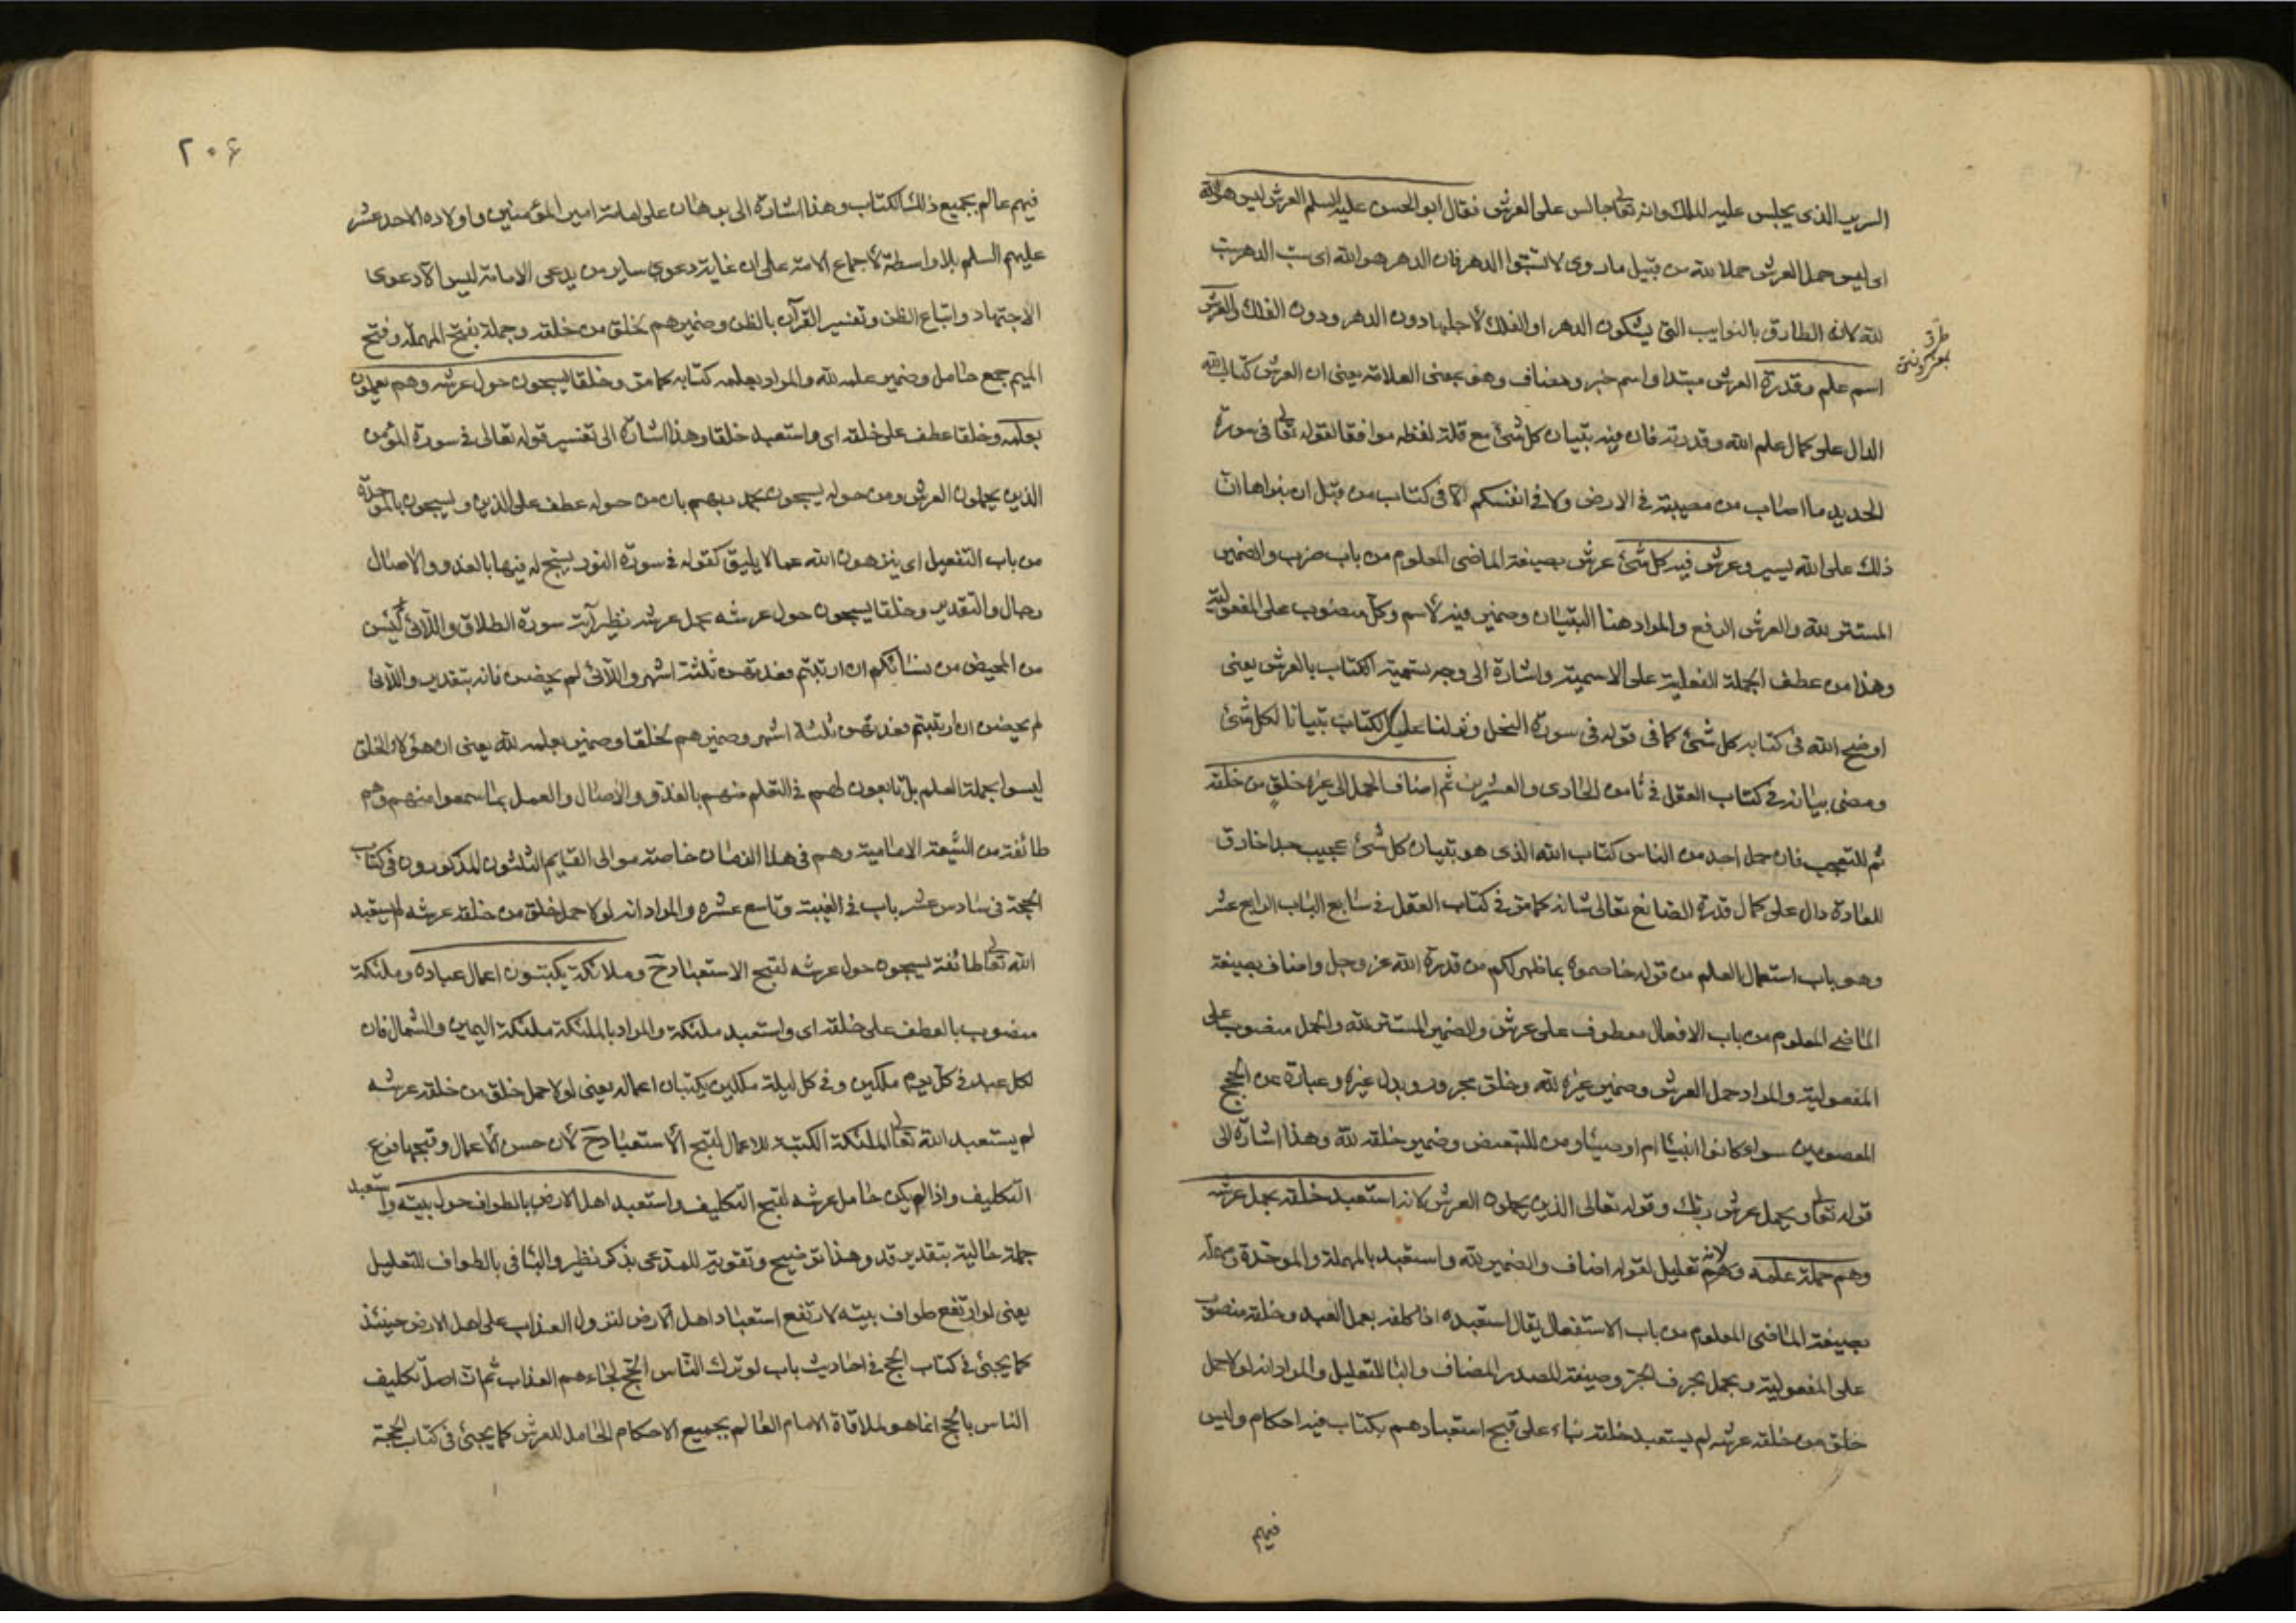 السرير الذى يجلس عليه الملك وانه تعالى جالس على العرش فقال ابو الحسن عليه السلم العرش ليس هو الله
اى ليس حمل العرش حملا لله من قبيل ما روى لا تسبّوا الدهر فان الدهر هو الله اى سبّ الدهر سبّ
لله لانه الطارق بالنوايب التى يشكون الدهر او الفلك لأجلها دون الدهر ودون الفلك والعرش
طرق
اسم علم وقدرة العرش مبتدا واسم خبر ومضاف وهو بمعنى العلامة يعنى ان العرش كتاب الله
الدال على كمال علم الله وقدرته فان فيه تبيان كل شئ مع قلة لفظه موافقا لقوله تعالى فى سورة
الحديد ما اصاب من مصيبة فى الارض ولا فى انفسكم الا فى كتاب من قبل ان نبراها انّ
ذلك على الله يسير وعرش فيه كل شئ عرش بصيغة الماضى المعلوم من باب ضرب والضمير
المستتر لله والعرش الرفع والمراد هنا التبيان وضمير فيه لأسم وكلّ منصوب على المفعولية
وهذا من عطف الجملة الفعلية على الاسمية واشارة الى وجه تسمية الكتاب بالعرش يعنى
اوضح الله فى كتابه كل شئ كما فى قوله فى سورة النحل ونزلنا عليك الكتاب تبيانا لكل شئ
ومضى بيانه فى كتاب العقل فى ثامن الحادى والعشرين ثم اضاف الحمل الى غيره خلقٍ من خلقه
ثم للتعجب فان حمل احد من الناس كتاب الله الذى هو تبيان كل شئ عجيب جدا خارق
للعادة دال على كمال قدرة الصانع تعالى شانه كما مرّ فى كتاب العقل فى سابع الباب الرابع عشر
وهو باب استعمال العلم من قوله خاصموه بما ظهر لكم من قدرة الله عز وجل واضاف بصيغة
الماضى المعلوم من باب الافعال معطوف على عرش والضمير المستتر لله والحمل منصوب على
المفعولية والمراد حمل العرش وضمير غيره لله وخلق مجرور وبدل غيره وعبارة عن الحجج
المعصومين سواء كانوا انبياء ام اوصياء ومن للتبعيض وضمير خلقه لله وهذا اشارة الى
قوله تعالى ويحمل عرش ربك وقوله تعالى الذين يحملون العرش لانه استعبد خلقه بحمل عرشه
وهم حملة علمه لانه تعليل لقوله اضاف والضمير لله واستعبد بالمهملة والموحّدة ومهملة
بصيغة الماضى المعلوم من باب الاستفعال يقال استعبده اذا كلفه بعمل العبد وخلقه منصوب
على المفعولية وبحمل بحرف الجرّ وصيغة المصدر المضاف والباء للتعليل والمراد انه لولا حمل
خلق من خلقه عرشه لم يستعبد خلقه بناء على قبح استعبادهم بكتاب فيه احكام وليس
فيهم
٢٠۶
فيهم عالم بجميع ذلك الكتاب وهذا اشارة الى برهان على امامة امير المؤمنين واولاده الاحد عشر
عليهم السلم بلا واسطة لأجماع الامة على ان غاية دعوى ساير من يدعى الامامة ليس الا دعوى
الاجتهاد واتباع الظن وتفسير القرآن بالظن وضمير هم لخلق من خلقه وحملة بفتح المهملة وفتح
الميم جمع حامل وضمير علمه لله والمراد بعلمه كتابه كما مرّ وخلقا يسبحون حول عرشه وهم يعملون
بعلمه وخلقا عطف على خلقه اى واستعبد خلقا وهذا اشارة الى تفسير قوله تعالى فى سورة المؤمن
الذين يحملون العرش ومن حوله يسبحون بحمد ربهم بان من حوله عطف على الذين ويسبحون بالموحّدة
من باب التفعيل اى ينزهون الله عما لا يليق كقوله فى سورة النور يسبح له فيها بالغدو والآصال
رجال والتقدير وخلقا يسبحون حول عرشه بحمل عرشه نظير آية سورة الطلاق واللآئى يئسن
من المحيض من نسائكم ان ارتبتم فعدتهن ثلثة اشهر واللآئى لم يحضن فانه بتقدير واللآئى
لم يحضن ان ارتبتم فعدتهن ثلثة اشهر وضمير هم لخلقا وضمير بعلمه لله يعنى ان هؤلاء الخلق
ليسوا بحملة العلم بل تابعون لهم فى التعلم منهم بالغدو والاصال والعمل بما سمعوا منهم وهم
طائفة من الشيعة الامامية وهم فى هذا الزمان خاصة موالى القايم الثلثون المذكورون فى كتاب
الحجة فى سادس عشر باب فى الغيبة وتاسع عشره والمراد انه لولا حمل خلق من خلقه عرشه لم يستعبد
الله تعالى طائفة يسبحون حول عرشه لقبح الاستعباد ح وملائكة يكتبون اعمال عباده وملئكة
منصوب بالعطف على خلقه اى واستعبد ملئكة والمراد بالملئكة ملئكة اليمين والشمال فان
لكل عبد فى كلّ يوم ملكين وفى كل ليلة ملكين يكتبان اعماله يعنى لولا حمل خلق من خلقه عرشه
لم يستعبد الله تعالى الملئكة الكتبة للاعمال لقبح الأستعباد ح لأن حسن الأعمال وقبحها فرع
التكليف واذا لم يكن حامل عرشه لقبح التكليف واستعبد اهل الارض بالطواف حول بيته واستعبد
جملة حالية بتقدير قد وهذا توضيح وتقوية للمدعى بذكر نظير والباء فى بالطواف للتعليل
يعنى لو ارتفع طواف بيته لارتفع استعباد اهل الارض لنزول العذاب على اهل الارض حينئذ
كما يجئ فى كتاب الحج فى احاديث باب لو ترك الناس الحج لجاءهم العذاب ثم ان اصل تكليف
الناس بالحج انما هو لملاقاة الامام العالم بجميع الاحكام الحامل للعرش كما يجئ فى كتاب الحجة